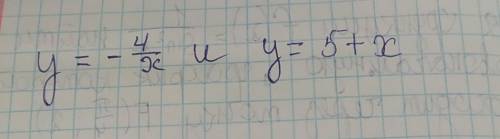 y = -\frac{4}{x} и y = 5 + x